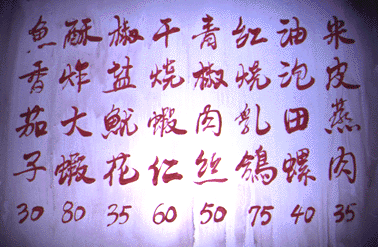 米皮蒸肉 35
油泡田螺 40
红烧乳鴿 75
青椒肉丝 50
干烧蝦仁 60
椒盐魷花 35
酥炸大蝦 80
魚香茄子 30